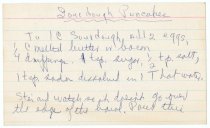 Sourdough Pancakes
To 1 C Sourdough, add 2 eggs
1/4 C melted butter or bacon
drippings, 1 tsp. sugar, 1/2 tsp salt,
1 tsp soda dissolved in 1 T hot water.
Stir and watch so it doesn't go over
the edge of the bowl.